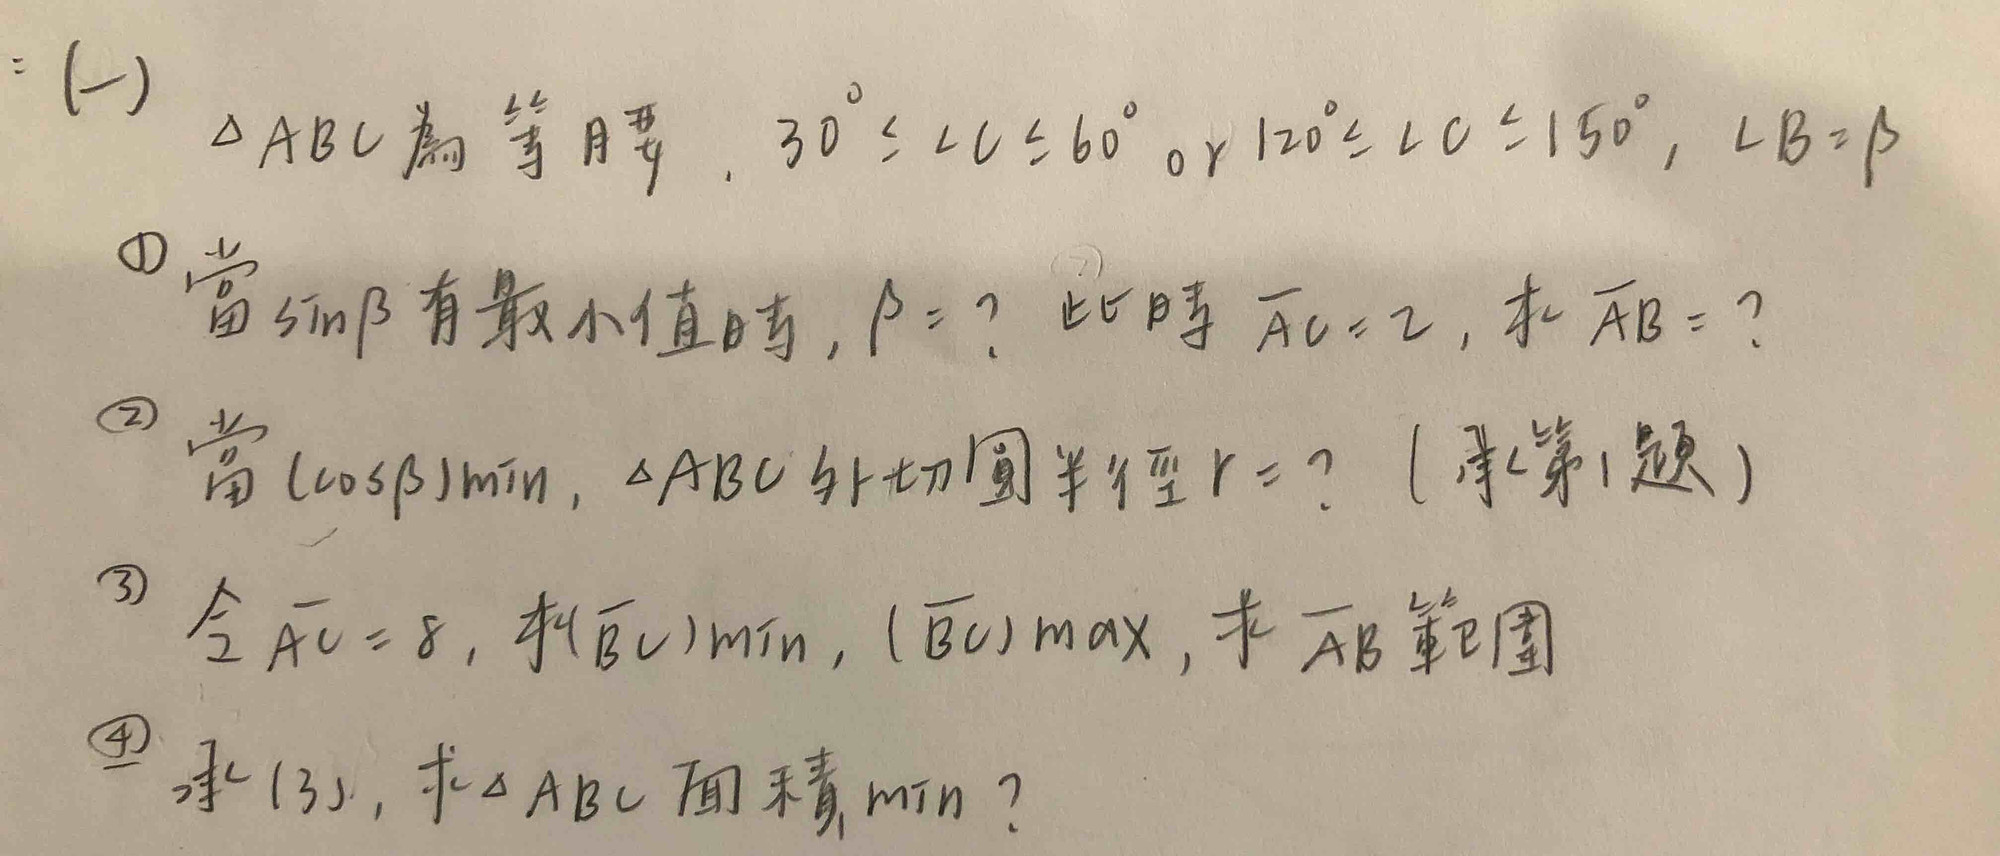 : (一)
△ABC為等腰, 30°≤∠C≤60° or 120°≤∠C≤150°, ∠B=β
① 當sinβ有最小值時, β=? 此時 A̅C̅=2, 求 A̅B̅=?
② 當(cosβ)min, △ABC外切圓半徑r=? (承第1題)
③ 令A̅C̅=8, 求(B̅C̅)min, (B̅C̅)max, 求A̅B̅範圍
④ 承(3), 求△ABC面積min?